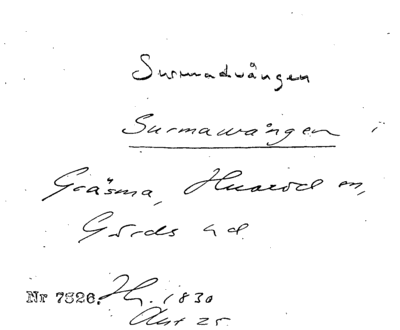 Surmadvången
Surmawången i
Gräsma, Huaröd sn,
Gärds hd
Nr 7326. Hg. 1830
Akt 25